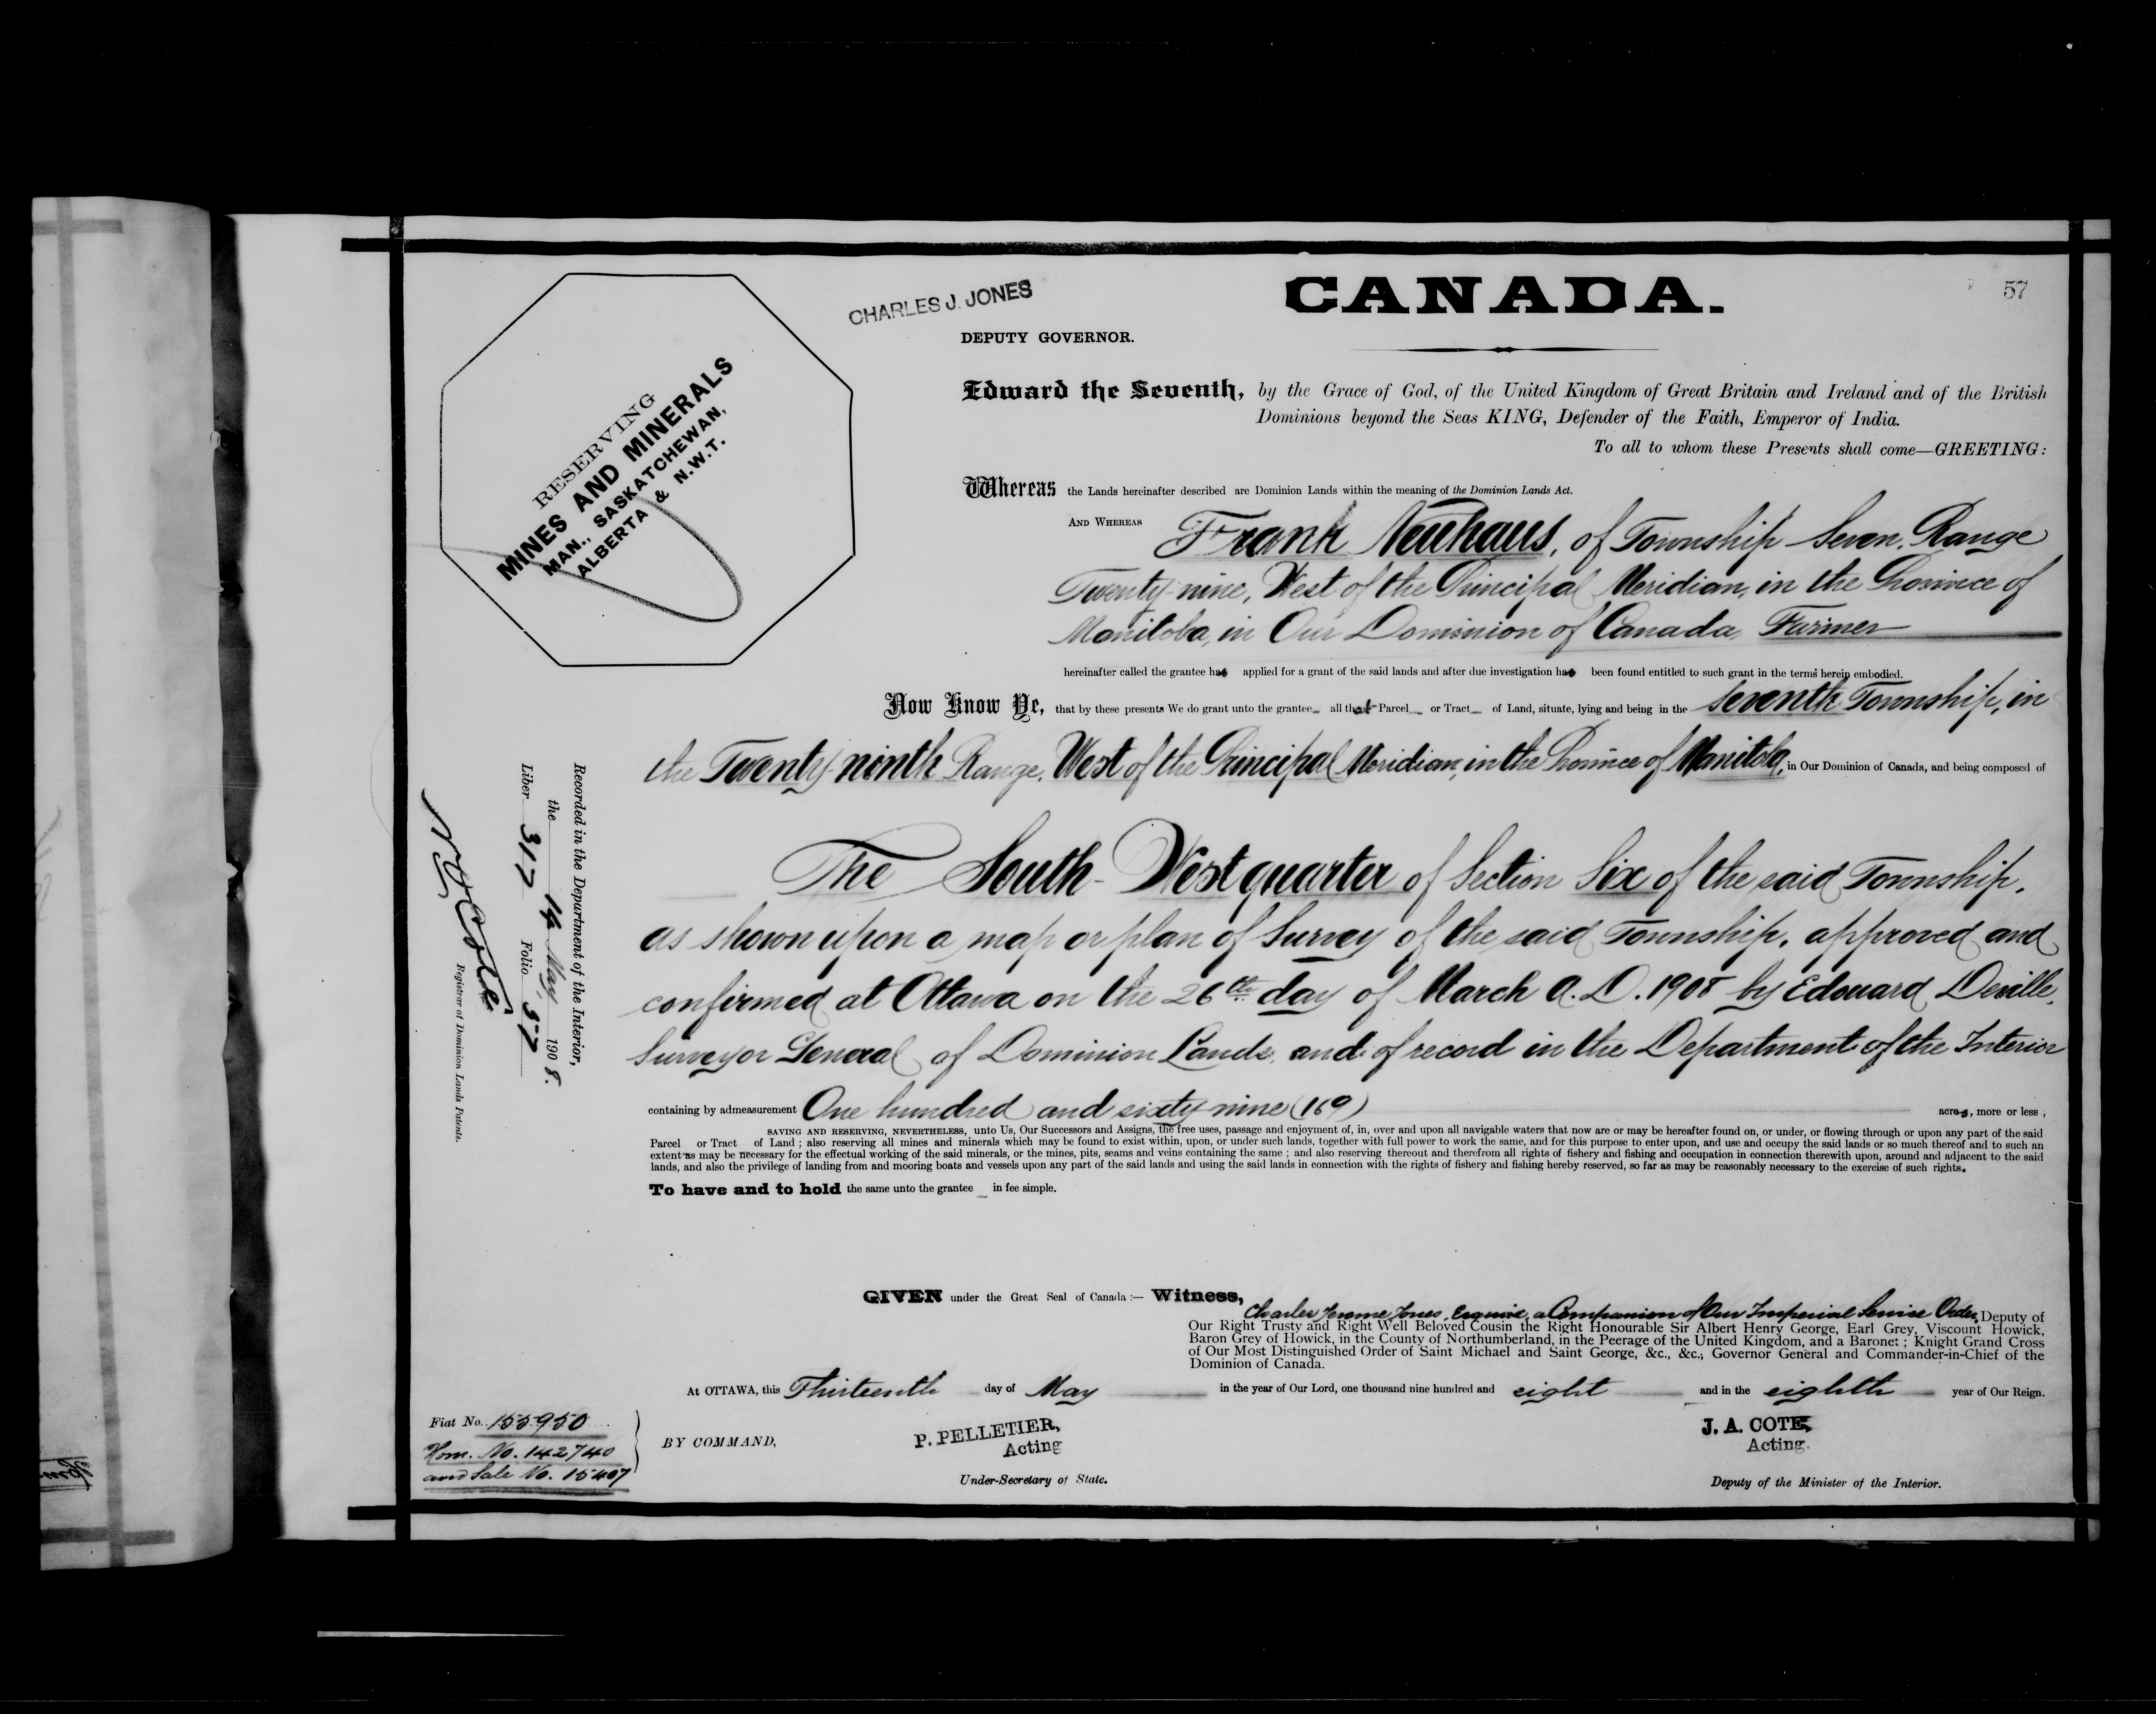 CANADA.
57
CHARLES J. JONES
DEPUTY GOVERNOR.
RESERVING
MINES AND MINERALS
MAN., SASKATCHEWAN,
ALBERTA & N.W.T.
Edward the Seventh, by the Grace of God, of the United Kingdom of Great Britain and Ireland and of the British
Dominions beyond the Seas KING, Defender of the Faith, Emperor of India.
To all to whom these Presents shall come—GREETING:
Whereas the Lands hereinafter described are Dominion Lands within the meaning of the Dominion Lands Act.
AND WHEREAS Frank Neuhaus, of Township Seven, Range
Twenty-nine, West of the Principal Meridian, in the Province of
Manitoba, in Our Dominion of Canada, Farmer
hereinafter called the grantee has applied for a grant of the said lands and after due investigation has been found entitled to such grant in the terms herein embodied.
Now Know Ye, that by these presents We do grant unto the grantee all that Parcel or Tract of Land, situate, lying and being in the seventh Township, in
the Twenty-ninth Range, West of the Principal Meridian, in the Province of Manitoba, in Our Dominion of Canada, and being composed of
The South-West quarter of Section Six of the said Township,
as shown upon a map or plan of Survey of the said Township, approved and
confirmed at Ottawa on the 26th day of March A.D. 1908 by Edouard Deville,
Surveyor General of Dominion Lands, and of record in the Department of the Interior
containing by admeasurement One hundred and sixty-nine (169) acres, more or less ;
SAVING AND RESERVING, NEVERTHELESS, unto Us, Our Successors and Assigns, the free uses, passage and enjoyment of, in, over and upon all navigable waters that now are or may be hereafter found on, or under, or flowing through or upon any part of the said
Parcel or Tract of Land ; also reserving all mines and minerals which may be found to exist within, upon, or under such lands, together with full power to work the same, and for this purpose to enter upon, and use and occupy the said lands or so much thereof and to such an
extent as may be necessary for the effectual working of the said minerals, or the mines, pits, seams and veins containing the same ; and also reserving thereout and therefrom all rights of fishery and fishing and occupation in connection therewith upon, around and adjacent to the said
lands, and also the privilege of landing from and mooring boats and vessels upon any part of the said lands and using the said lands in connection with the rights of fishery and fishing hereby reserved, so far as may be reasonably necessary to the exercise of such rights.
To have and to hold the same unto the grantee in fee simple.
Recorded in the Department of the Interior,
the 14 May 1908.
Liber 317 Folio 57
N O Coté
Registrar of Dominion Lands Patents.
GIVEN under the Great Seal of Canada :— Witness,
Charles Jerome Jones, Esquire, a Companion of Our Imperial Service Order, Deputy of
Our Right Trusty and Right Well Beloved Cousin the Right Honourable Sir Albert Henry George, Earl Grey, Viscount Howick,
Baron Grey of Howick, in the County of Northumberland, in the Peerage of the United Kingdom, and a Baronet ; Knight Grand Cross
of Our Most Distinguished Order of Saint Michael and Saint George, &c., &c., Governor General and Commander-in-Chief of the
Dominion of Canada.
At OTTAWA, this Thirteenth day of May in the year of Our Lord, one thousand nine hundred and eight and in the eighth year of Our Reign.
Fiat No. 155950
Hom. No. 142740
and Sale No. 15407
BY COMMAND,
P. PELLETIER,
Acting
Under-Secretary of State.
J. A. COTE,
Acting.
Deputy of the Minister of the Interior.